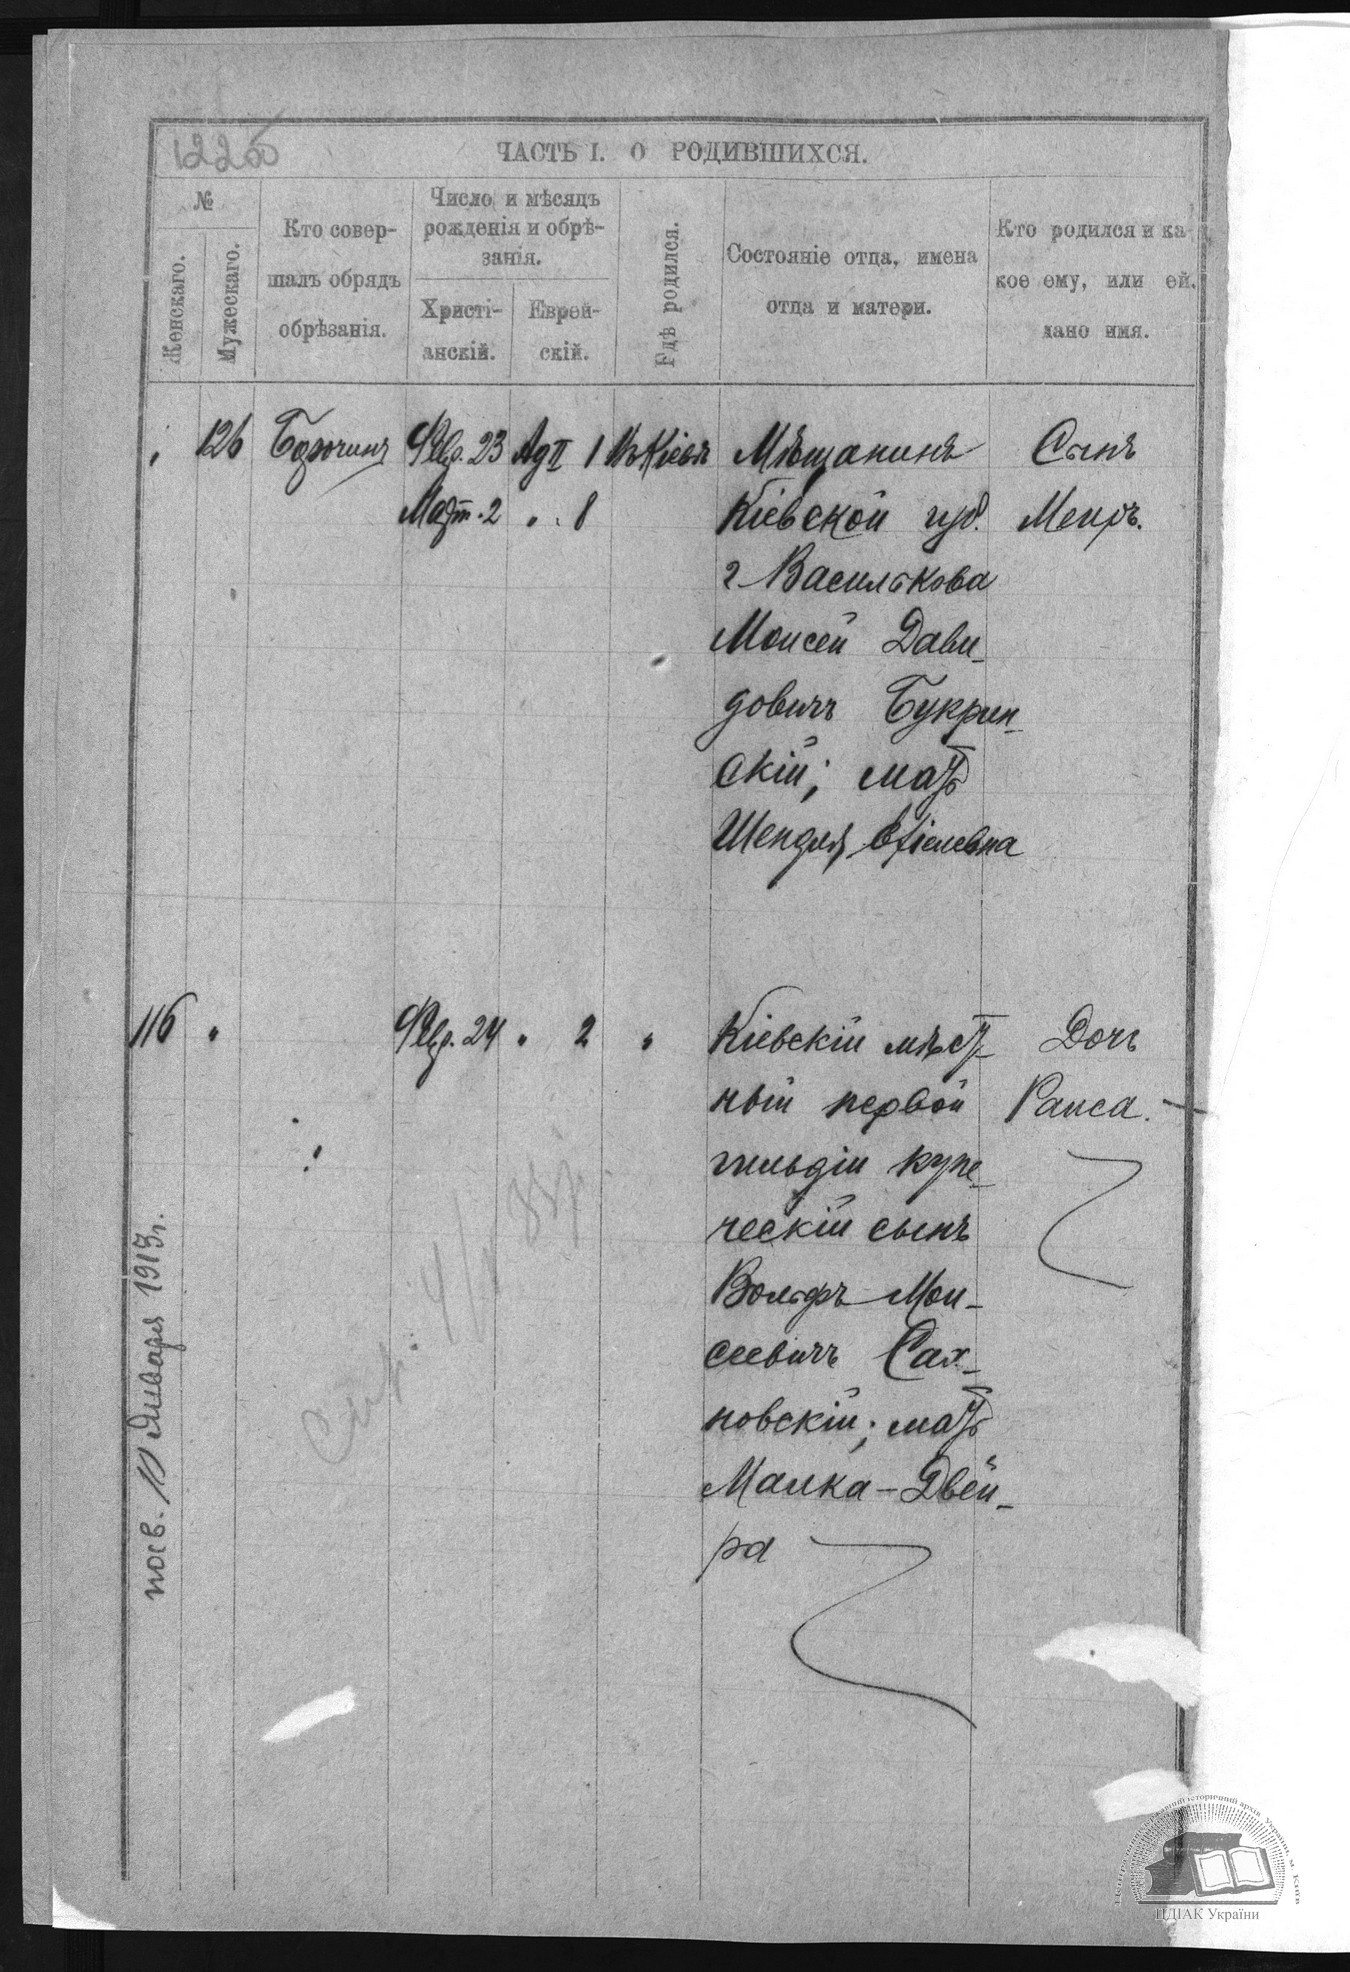 ЧАСТЬ I. О РОДИВШИХСЯ.
№
Женскаго.
Мужескаго.
Кто совер-
шалъ обрядъ
обрѣзанія.
Число и мѣсяцъ
рожденія и обрѣ-
занія.
Христі-
анскій.
Еврей-
скій.
Гдѣ родился.
Состояніе отца, имена
отца и матери.
Кто родился и ка-
кое ему, или ей,
дано имя.
126
Февр. 23 Ад II 1 Въ Кіевѣ
Март. 2 " 8
Мѣщанинъ
Кіевской губ.
г Василькова
Моисей Дави-
довичъ Букрин-
скій; мать
Шендля
Сынъ
Меиръ.
116 "
Февр. 24 " 2 "
Кіевскій
ный первой
гильдіи купе-
ческій сынъ
Вольфъ Мои-
сеевичъ Сах-
новскій; мать
Малка-Двей-
ра
Дочь
Раиса.
10 Января 1913 г.
ЦДІАК України